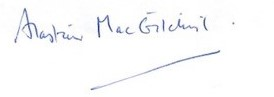 Alastair MacGilchrist.